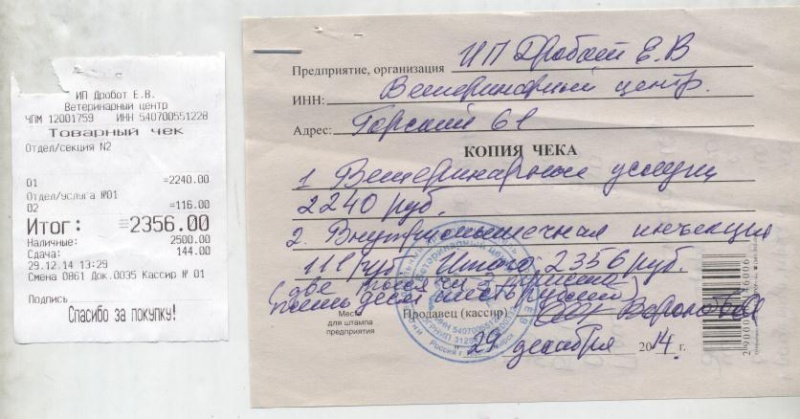 ИП Дробот Е.В.
Ветеринарный центр
ЧПМ 12001759 ИНН 540700551228
Товарный чек
Отдел/секция N2
01 =2240.00
Отдел/услуга №01
02 =116.00
Итог: =2356.00
Наличные: 2500.00
Сдача: 144.00
29.12.14 13:29
Смена 0861 Док.0035 Кассир № 01
Подпись
Спасибо за покупку!
Предприятие, организация ИП Дробот Е.В
ИНН: Ветеринарный центр.
Адрес: Горский 61
КОПИЯ ЧЕКА
1 Ветеринарные услуги
2240 руб.
2. Внутримышечная инъекция
руб Итого: 2356 руб.
(две тысячи триста
пятьдесят шесть рублей)
Место
для штампа
предприятия
Продавец (кассир)
"29" декабря 2014 г.